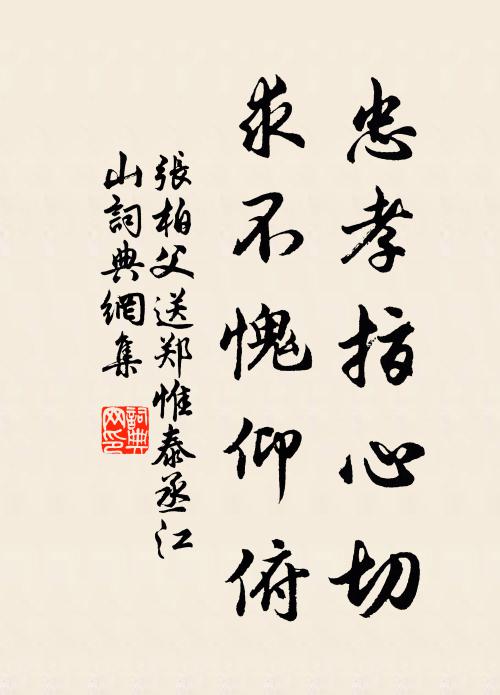 忠孝指心切
求不愧仰俯
張柏父送郑惟泰丞江
山詞典網集
詞典
网印